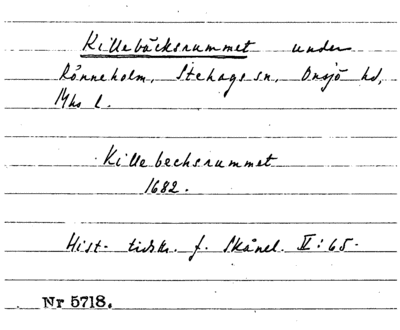 Killebäcksrummet under
Rönneholm, Stehags sn, Onsjö hd,
Mhs l.
Killebechsrummet
1682.
Hist. tidskr. f. Skånel. II: 65.
Nr 5718.